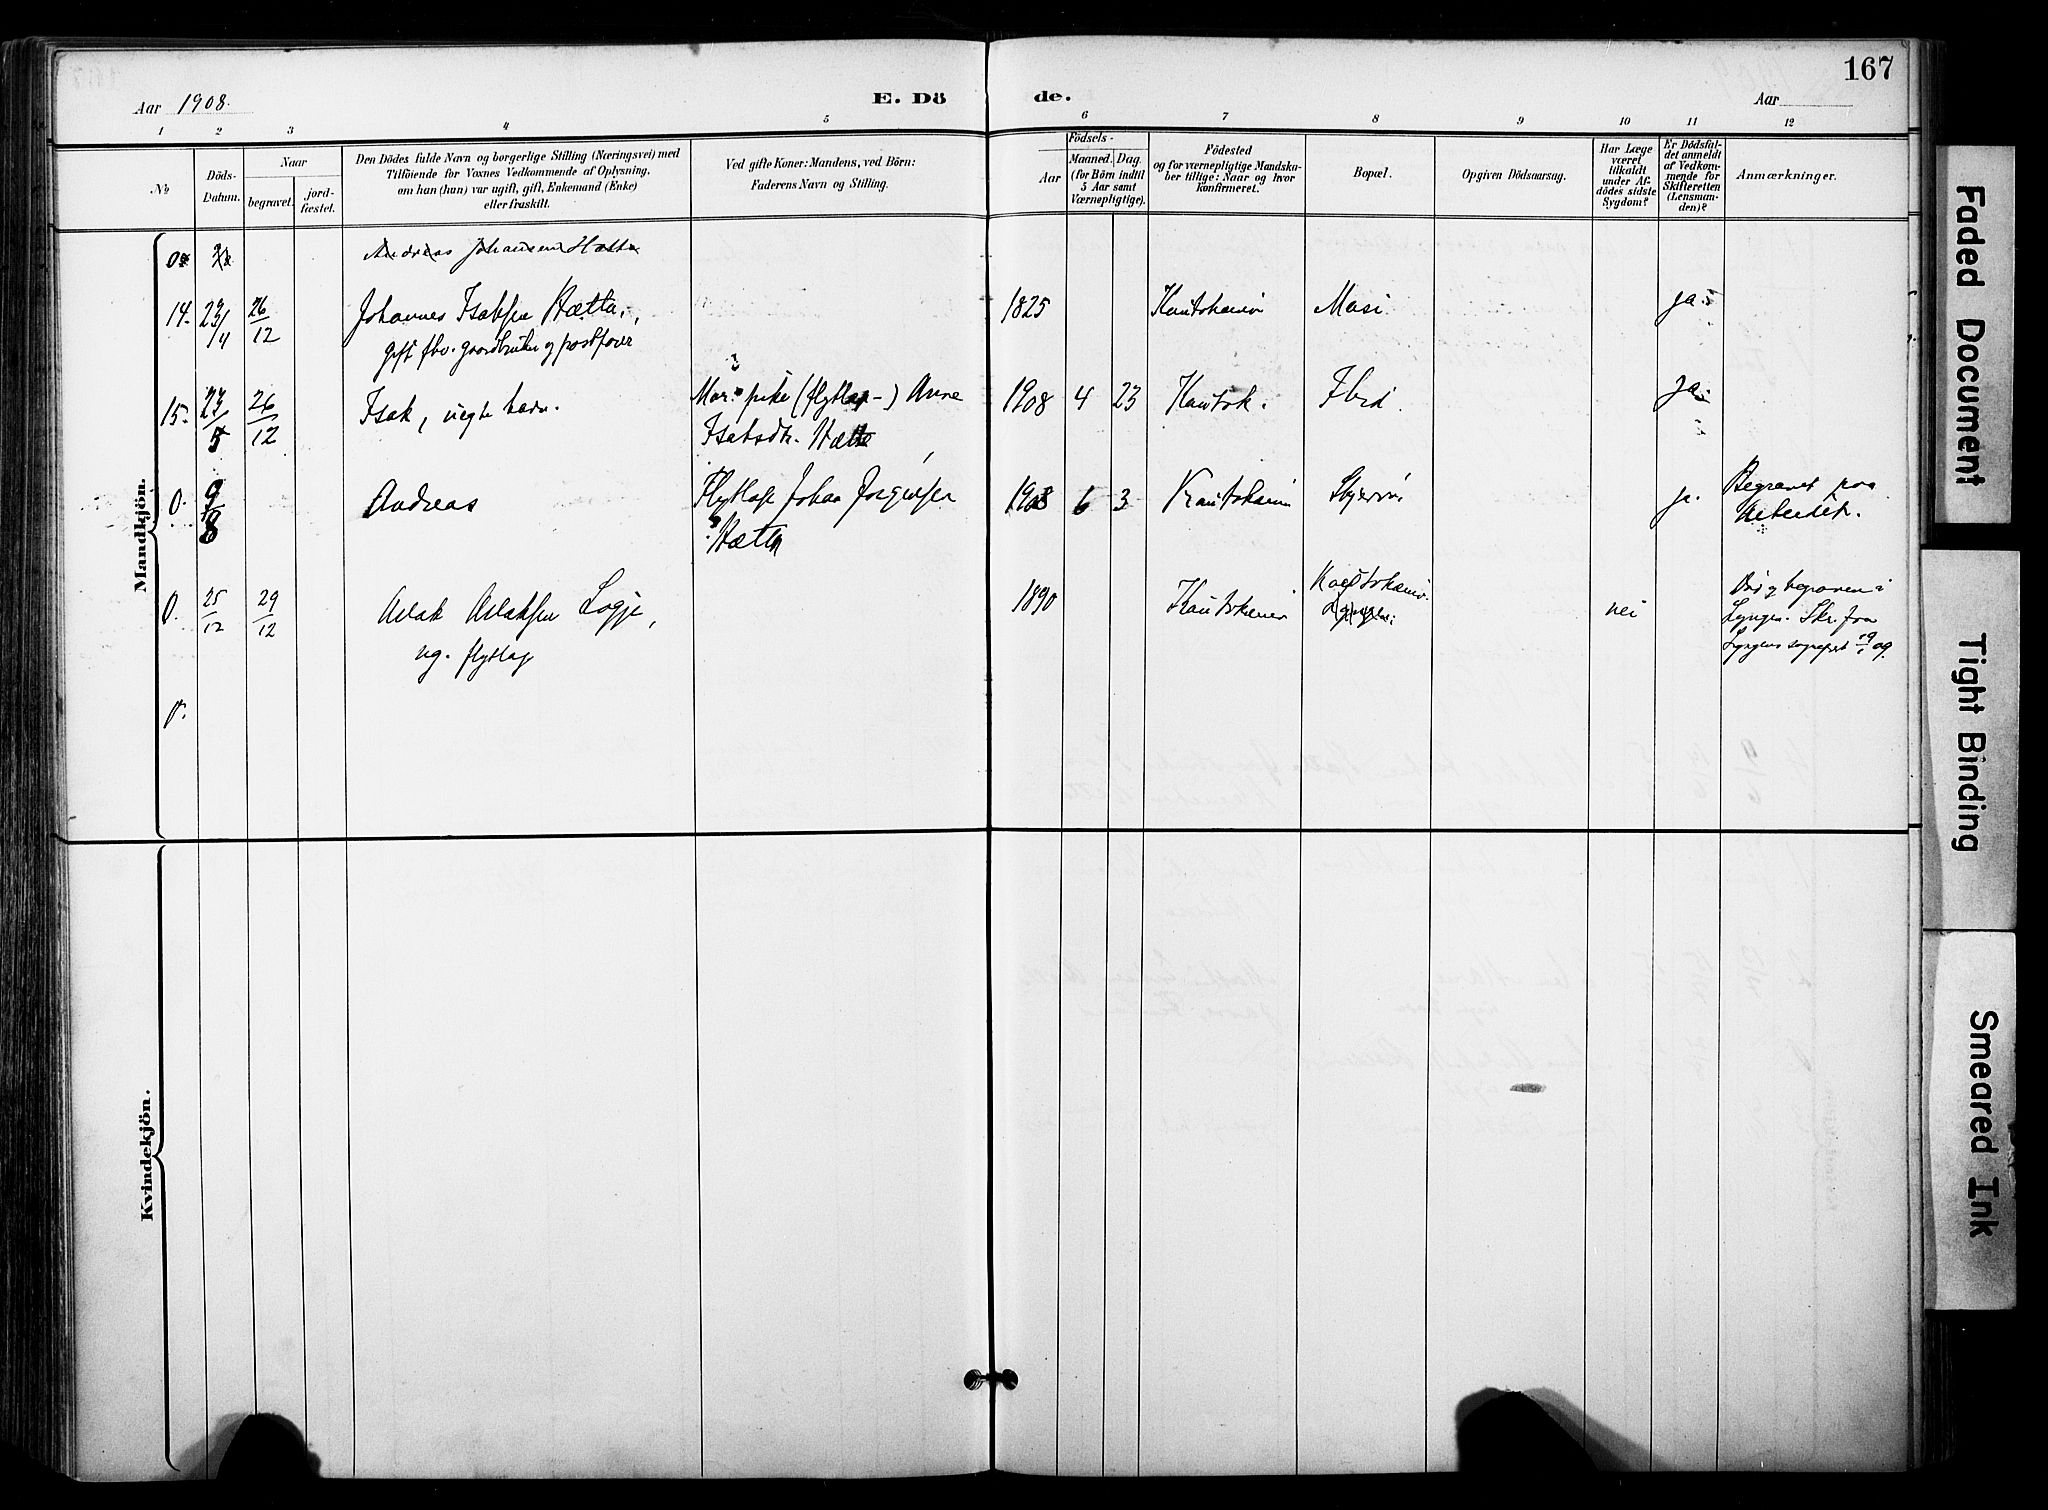 167
Aar 1908.
E. Dö de.
Aar
1 2 3 4 5 6 7 8 9 10 11 12
No
Döds-
Datum.
Naar
begravet.
jord-
fæstet.
Den Dödes fulde Navn og borgerlige Stilling (Næringsvei) med
Tilföiende for Voxnes Vedkommende af Oplysning,
om han (hun) var ugift, gift, Enkemand (Enke)
eller fraskilt.
Ved gifte Koner: Mandens, ved Börn:
Faderens Navn og Stilling.
Födsels-
Aar
Maaned. Dag.
(for Börn indtil
5 Aar samt
Værnepligtige).
Födested
og for værnepligtige Mandska-
ber tillige: Naar og hvor
konfirmeret.
Bopæl.
Opgiven Dödsaarsag.
Har Læge
været
tilkaldt
under Af-
dödes sidste
Sygdom?
Er Dödsfal-
det anmeldt
af Vedkom-
mende for
Skifteretten
(Lensman-
den)?
Anmærkninger.
Mandkjön.
Andreas Johansen Hætta
14. 23/4 26/12 Johannes Isaksen Hætta, 1825 Kautokeino Masi ja
gift fhv. gaardbruker og postfører
15. 23/5 26/12 Isak, uegte barn. Mor: pike (flytlap-) Anne 1908 4 23 Kautok. Ibid. ja.
Isaksdtr. Hætta
0. 9/8 Andreas Flytlap Johan Jørgensen 1908 6 3 Kautokeino Skjervøi ja. Begravet paa
Hætta Arbeidet.
0. 25/12 29/12 Aslak Aslaksen Logje, 1890 Kautokeino Kautokeino. nei
ug. flytlap Lyngen. Skr. fra
Lyngens sogneprest 19/1 09.
0.
Kvindekjön.
Faded Document
Tight Binding
Smeared Ink